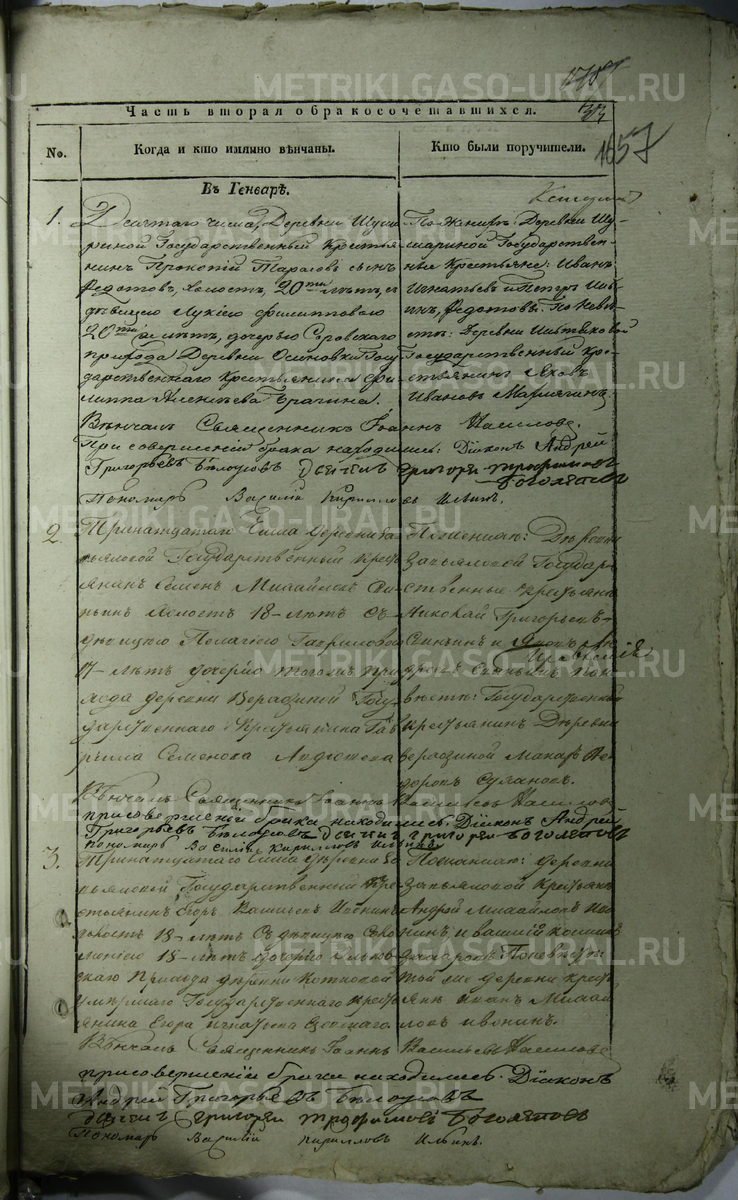 METRIKI.GASO-URAL.RU
1657
Часть вторая о бракосочетавшихся.
No.
Когда и кто имянно вѣнчаны.
Кто были поручители.
Въ Генварѣ.
1. Десятаго числа, Деревни Шума-
риной Государственный Крестья-
нинъ Прокопій Тарасовъ сынъ
Федотовъ, холостъ, 20ти лѣтъ, съ
дѣвицею Лукіею Филипповою
20ти лѣтъ, дочерью
прихода Деревни Осиновки Госу-
дарственнаго Крестьянина Фи-
липпа Алексѣева Брагина.
По Женихѣ: Деревни Шу-
мариной Государствен-
ные Крестьяне: Иванъ
Игнатьевъ и Петръ
Федотовъ. По Невѣ-
стѣ: Деревни
Государственный кре-
стьянинъ Яковъ
Ивановъ
Вѣнчалъ Священникъ Іоаннъ Насиловъ.
При совершеніи брака находились: Діаконъ Андрей
Григорьевъ Бѣлоусовъ Дьячекъ Григорей Трофимовъ
Боголѣповъ
Пономарь Василій Кирилловъ Ильинъ.
2. Тринатцатаго Числа деревни За-
вьяловой Государственный Кресть-
янинъ Семенъ Михайловъ
холостъ 18-лѣтъ Съ
дѣвицею Пелагіею Гавриловою
17-лѣтъ дочерью тогожъ при-
хода деревни Верашиной Госу-
дарственнаго Крестьянина Гав-
рила Семенова
По женихѣ: Деревни
Завьяловой Государ-
ственные крестьяна
Николай Григорьевъ
По не-
вѣстѣ: Государственной
крестьянинъ Деревни
Верашиной Макаръ Фе-
доровъ
Вѣнчалъ Священникъ Іоаннъ Васильевъ Насиловъ
при совершеніи брака находились: Діаконъ Андрей
Григорьевъ Бѣлоусовъ дьячекъ Григорей Боголѣповъ
пономарь Василій Кирилловъ Ильинъ
3. Тринатцатаго Числа деревни За-
вьяловой Государственный Кре-
стьянинъ Егоръ Васильевъ Ивонинъ
холостъ 18-лѣтъ Съ дѣвицею
18-лѣтъ дочерью
скаго Прихода деревни
умершаго Государственнаго кресть-
янина Егора
По женихѣ: деревни
Завьяловой Крестьяна
Андрей Михайловъ Иво-
нинъ и Василій
По невѣстѣ
той же деревни кресть-
янинъ Иванъ Михай-
ловъ Ивонинъ.
Вѣнчалъ Священникъ Іоаннъ Васильевъ Насиловъ
при совершеніи брака находились: Діаконъ
Андрей Григорьевъ Бѣлоусовъ
дьячекъ Григорей Трофимовъ Боголѣповъ
Пономарь Василій Кирилловъ Ильинъ.